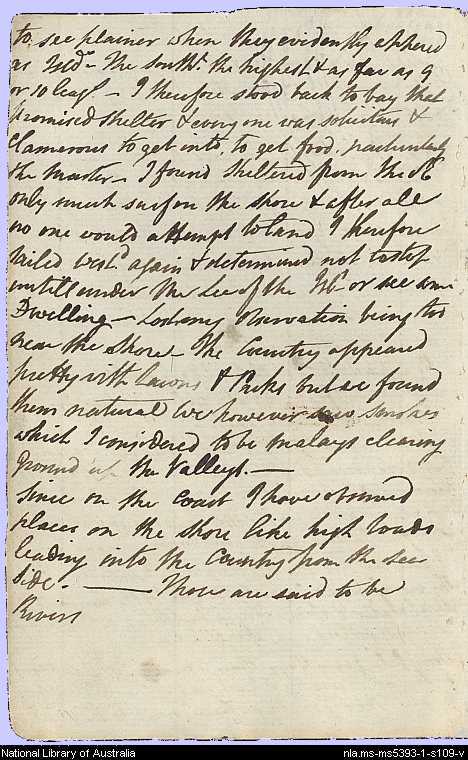 to see plainer when they evidently appered
as Isld.s - The South.t the highest & as far as 9
or 10 leag.s - I therefore stood back to bay that
promised shelter & every one was solicitous &
Clamerous to get into, to get food, particularly
the Master - I found sheltered from the
only much surf on the shore & after all
no one would attempt to land I therefore
sailed west.d again & determined not to stop
untill under the Lee of the Isl.d or see some
Dwelling - Lost my observation being too
near the Shore - The Country appeared
pretty with Lawns & Parks but we found
them natural we however saw smokes
which I considered to be malays clearing
Ground up the Valleys. —
Since on the Coast I have observed
places on the shore like high loads
leading into the Country from the sea
side. ——— These are said to be
Rivers
National Library of Australia
nla.ms-ms5393-1-s109-v